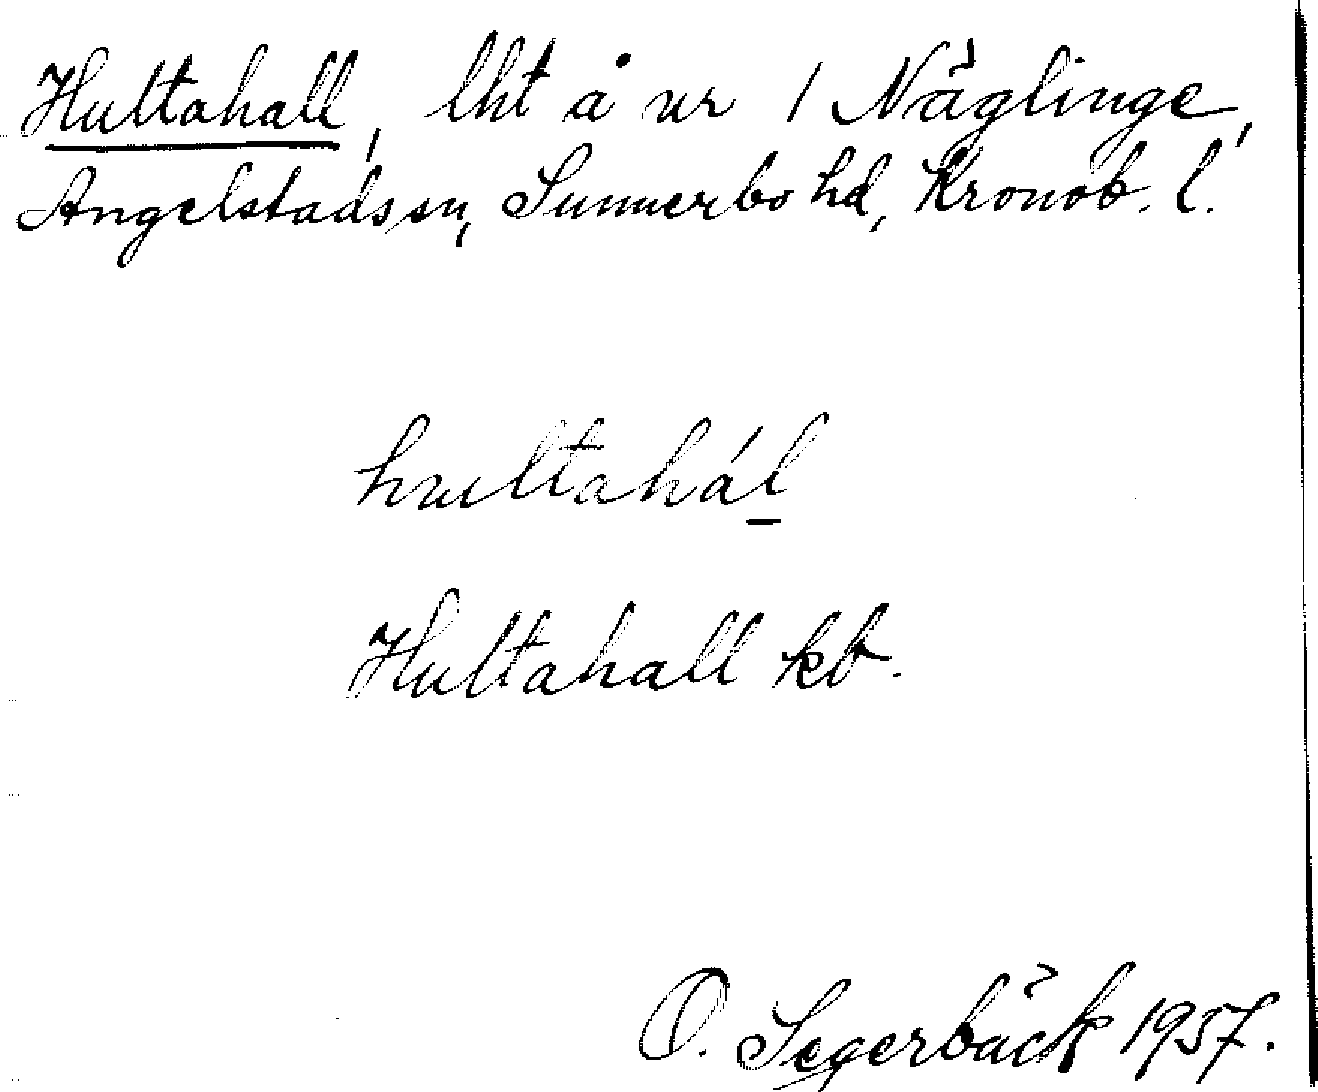 Hultahall, lht å nr 1 Näglinge,
Angelstads sn, Sunnerbo hd, Kronob. l.
hultahál
Hultahall kb.
O. Segerbäck 1957.